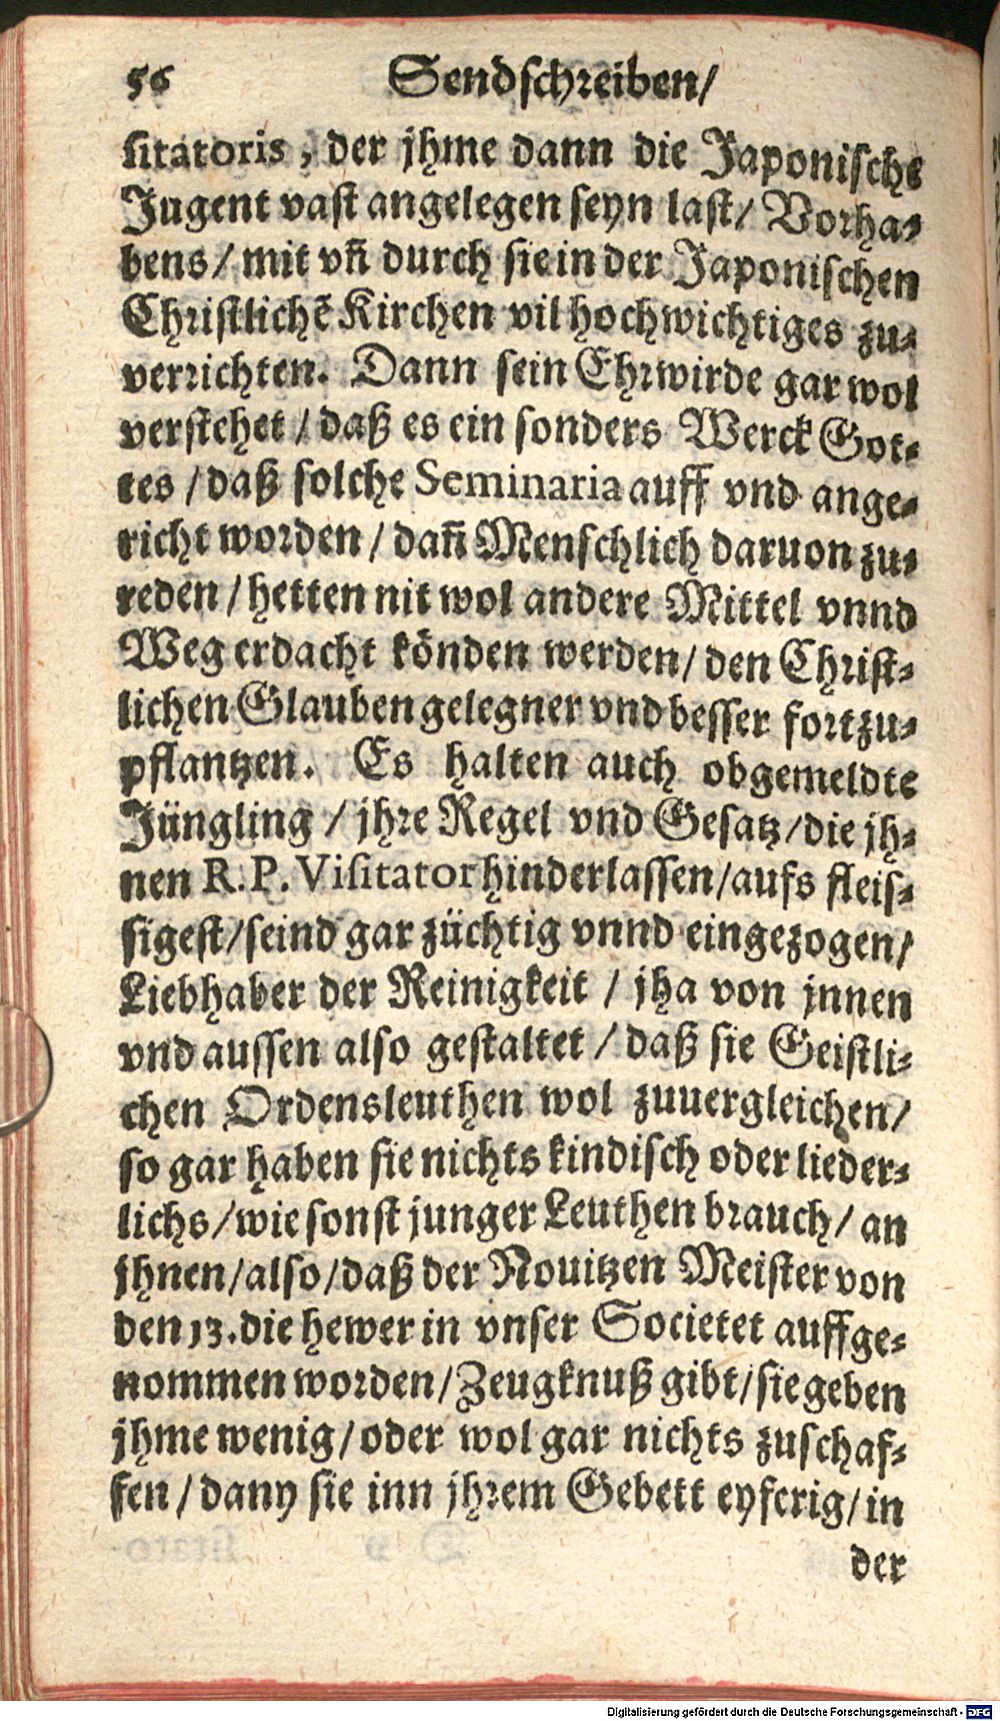 56 Sendschreiben/
sitatoris, der jhme dann die Japonische
Jugent vast angelegen seyn last/ Vorha-
bens/ mit vn̄ durch sie in der Japonischen
Christlichē Kirchen vil hochwichtiges zu-
verrichten. Dann sein Ehrwirde gar wol
verstehet/ daß es ein sonders Werck Got-
tes/ daß solche Seminaria auff vnd ange-
richt worden/ dañ Menschlich daruon zu-
reden/ hetten nit wol andere Mittel vnnd
Weg erdacht könden werden/ den Christ-
lichen Glauben gelegner vnd besser fortzu-
pflantzen. Es halten auch obgemeldte
Jüngling/ jhre Regel vnd Gesatz/ die jh-
nen R.P. Visitator hinderlassen/ aufs fleis-
sigest/ seind gar züchtig vnnd eingezogen/
Liebhaber der Reinigkeit/ jha von jnnen
vnd aussen also gestaltet/ daß sie Geistli-
chen Ordensleuthen wol zuuergleichen/
so gar haben sie nichts kindisch oder lieder-
lichs/ wie sonst junger Leuthen brauch/ an
jhnen/ also/ daß der Nouitzen Meister von
den 13. die hewer in vnser Societet auffge-
nommen worden/ Zeugknuß gibt/ sie geben
jhme wenig/ oder wol gar nichts zuschaf-
fen/ dany sie inn jhrem Gebett eyferig/ in
der
Digitalisierung gefördert durch die Deutsche Forschungsgemeinschaft - DFG